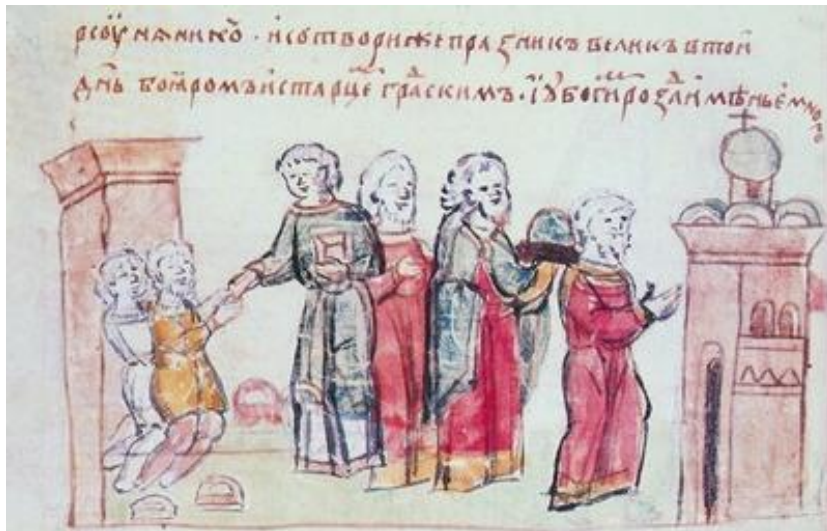 рсоунѧнинѡ · исотворижепраꙁникъ великъ втои
дн҃ь боꙗромъ истарцеⷨ граⷣскимъ · їꙋбогиⷨ роꙁдаи имѣнье много